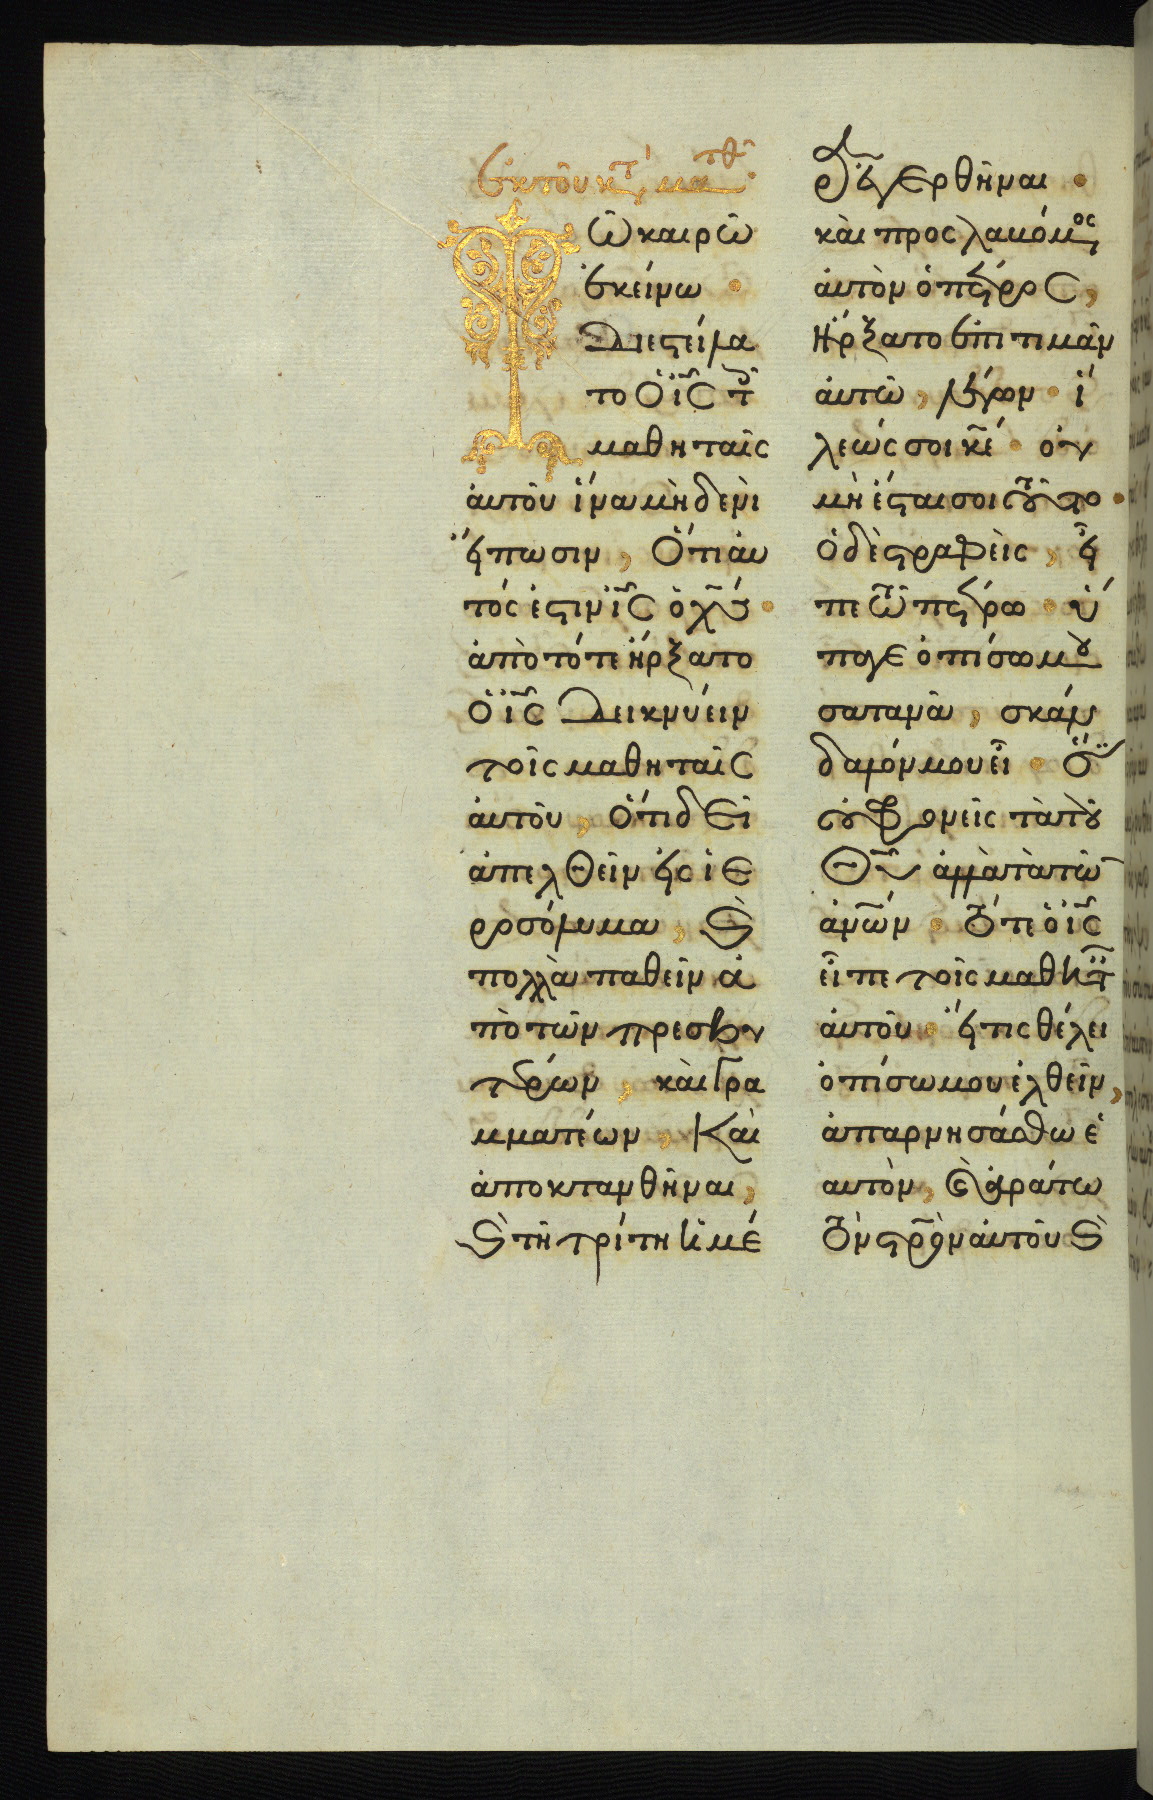 ἐκ τοῦ κατ μα τθ
Τῶ καιρῶ
ἐκείνω ·
Διεστείλα
το ὁ ἰς τ
μαθηταῖς
αὐτοῦ ἵνα μηδενὶ
εἴπωσιν, Ὅτι αὐ
τός ἐστιν ἰς ὁ χς ·
ἀπὸ τότε ἤρξατο
ὁ ἰς Δεικνύειν
τοῖς μαθηταῖς
αὐτοῦ, Ὅτι δεῖ
ἀπελθεῖν εἰς ἱε
ροσόλυμα, καὶ
πολλὰ παθεῖν ἀ
πὸ τῶν πρεσβυ
τέρων, καὶ Γρα
μματέων, Καὶ
ἀποκτανθῆναι,
καὶ τῆ τρίτη ἡμέ
ρα ἐγερθῆναι ·
καὶ προσλαβόμενος
αὐτὸν ὁ πέτρος,
Ἤρξατο ἐπιτιμᾶν
αὐτῶ, λέγων · ἵ
λεώς σοι κε · οὐ
μὴ ἔσται σοι τοῦτο ·
Ὁ δὲ στραφεὶς, εἶ
πε τῶ πέτρω · ὕ
παγε ὀπίσω μου
σατανᾶ, σκάν
δαλόν μου εἶ · ὅτι
οὐ φρονεῖς τὰ τοῦ
θυ ἀλλὰ τὰ τῶν
ἀνων · Τότε ὁ ἰς
εἶπε τοῖς μαθητ
αὐτοῦ · εἴ τις θέλει
ὀπίσω μου ἐλθεῖν,
ἀπαρνησάσθω ἑ
αυτὸν, καὶ ἀράτω
τὸν σταυρὸν αὐτοῦ καὶ